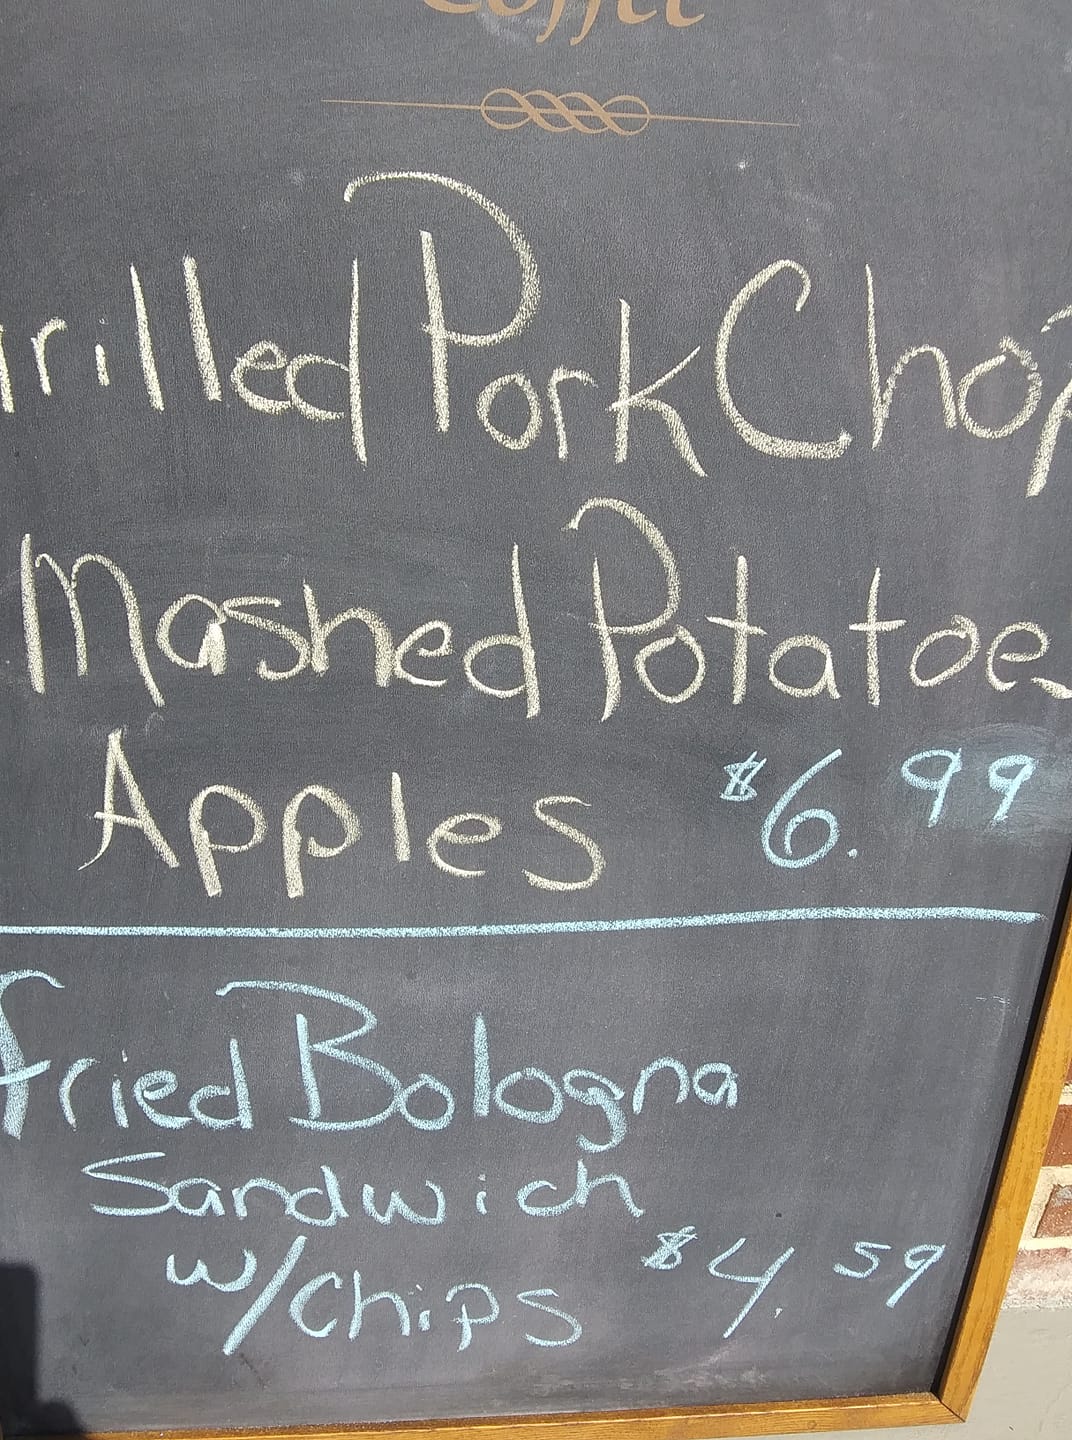 Coffee
rilled Pork Chop
Mashed Potatoes
Apples $6.99
Fried Bologna
Sandwich
w/Chips $4.59